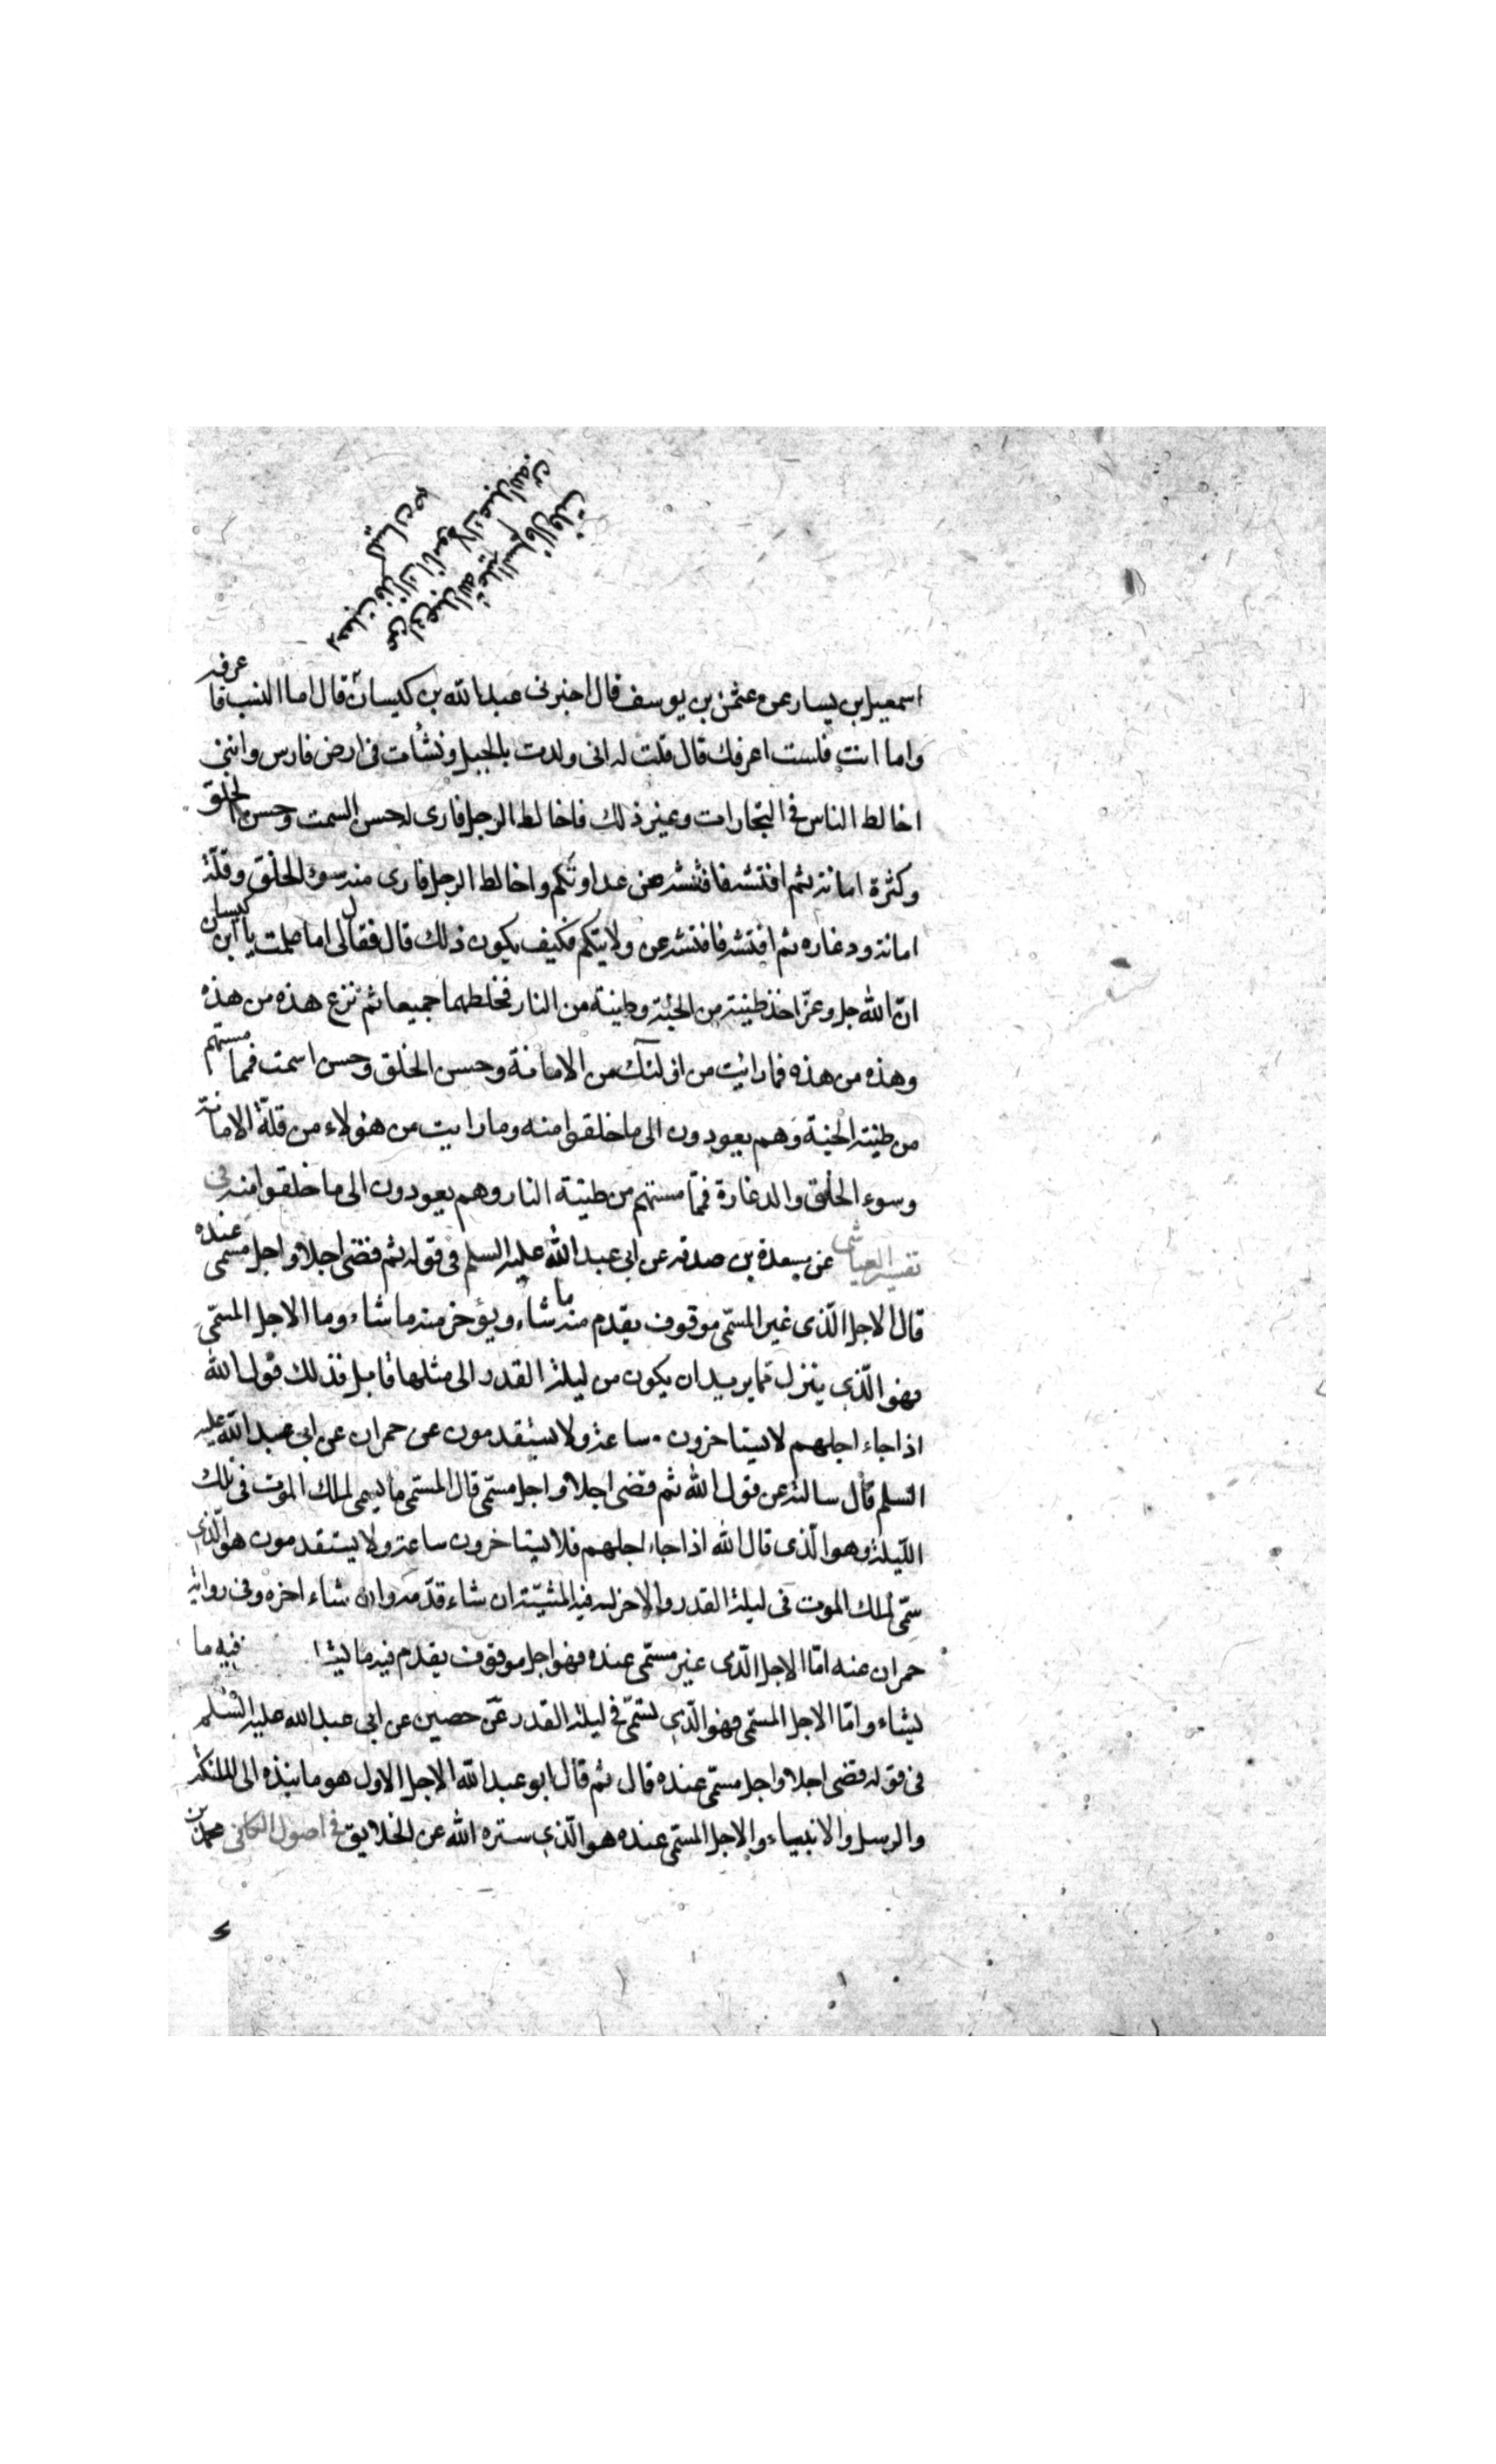 عن ابي عبد الله عليه السلم قال قلت
اسمعيل بن يسار عن عثمن بن يوسف قال اخبرنى عبد الله بن كيسان قال اما النسب فاعرفه
واما انت فلست اعرفك قال قلت له انى ولدت بالجبل ونشأت فى ارض فارس واننى
اخالط الناس فى التجارات وغير ذلك فاخالط الرجل فارى له حسن السمت وحسن الخلق
وكثرة امانة ثم افتشه فافتشه عن عداوتكم واخالط الرجل فارى منه سوء الخلق وقلة
امانة ودعاره ثم افتشه فافتشه عن ولايتكم فكيف يكون ذلك قال فقال لى اما علمت يا ابن كيسان
ان الله جل وعز اخذ طينة من الجنة وطينة من النار فخلطهما جميعا ثم نزع هذه من هذه
وهذه من هذه فما رايت من اولئك من الامانة وحسن الخلق وحسن اسمت فمما مستهم
من طينة الجنة وهم يعودون الى ما خلقوا منه وما رايت من هؤلاء من قلة الامانة
وسوء الخلق والدعارة فمما مستهم من طينة النار وهم يعودون الى ما خلقوا منه فى
تفسير العياشى عن مسعدة بن صدقه عن ابى عبد الله عليه السلم فى قوله ثم قضى اجلا واجل مسمى عنده
قال الاجل الّذى غير المسمّى موقوف يقدم منه ما شاء ويؤخر منه ما شاء وما الاجل المسمّى
فهو الّذى ينزل مما يريد ان يكون من ليلة القدر الى مثلها قابل فذلك قول الله
اذا جاء اجلهم لا يستاخرون ساعة ولا يستقدمون عن حمران عن ابى عبد الله عليه
السلم قال سالته عن قول الله ثم قضى اجلا واجل مسمّى قال المسمى ما يسمى لملك الموت فى تلك
اللّيلة وهو الّذى قال الله اذا جاء اجلهم فلا يستاخرون ساعة ولا يستقدمون هو الّذى
سمّى لملك الموت فى ليلة القدر والاخر له فيه المشيّة ان شاء قدّمه وان شاء اخره وفى رواية
حمران عنه امّا الاجل الّذى غير مسمّى عنده فهو اجل موقوف يقدم فيه ما يشا فيه ما
يشاء وامّا الاجل المسمّى فهو الّذى يسمّى فى ليلة القدر عن حصين عن ابى عبد الله عليه السّلم
فى قوله قضى اجلا واجل مسمّى عنده قال ثم قال ابو عبد الله الاجل الاول هو ما ينبذه الى الملئكة
والرسل والانبياء والاجل المسمّى عنده هو الّذى ستره الله عن الخلايق فى اصول الكافى محمد بن